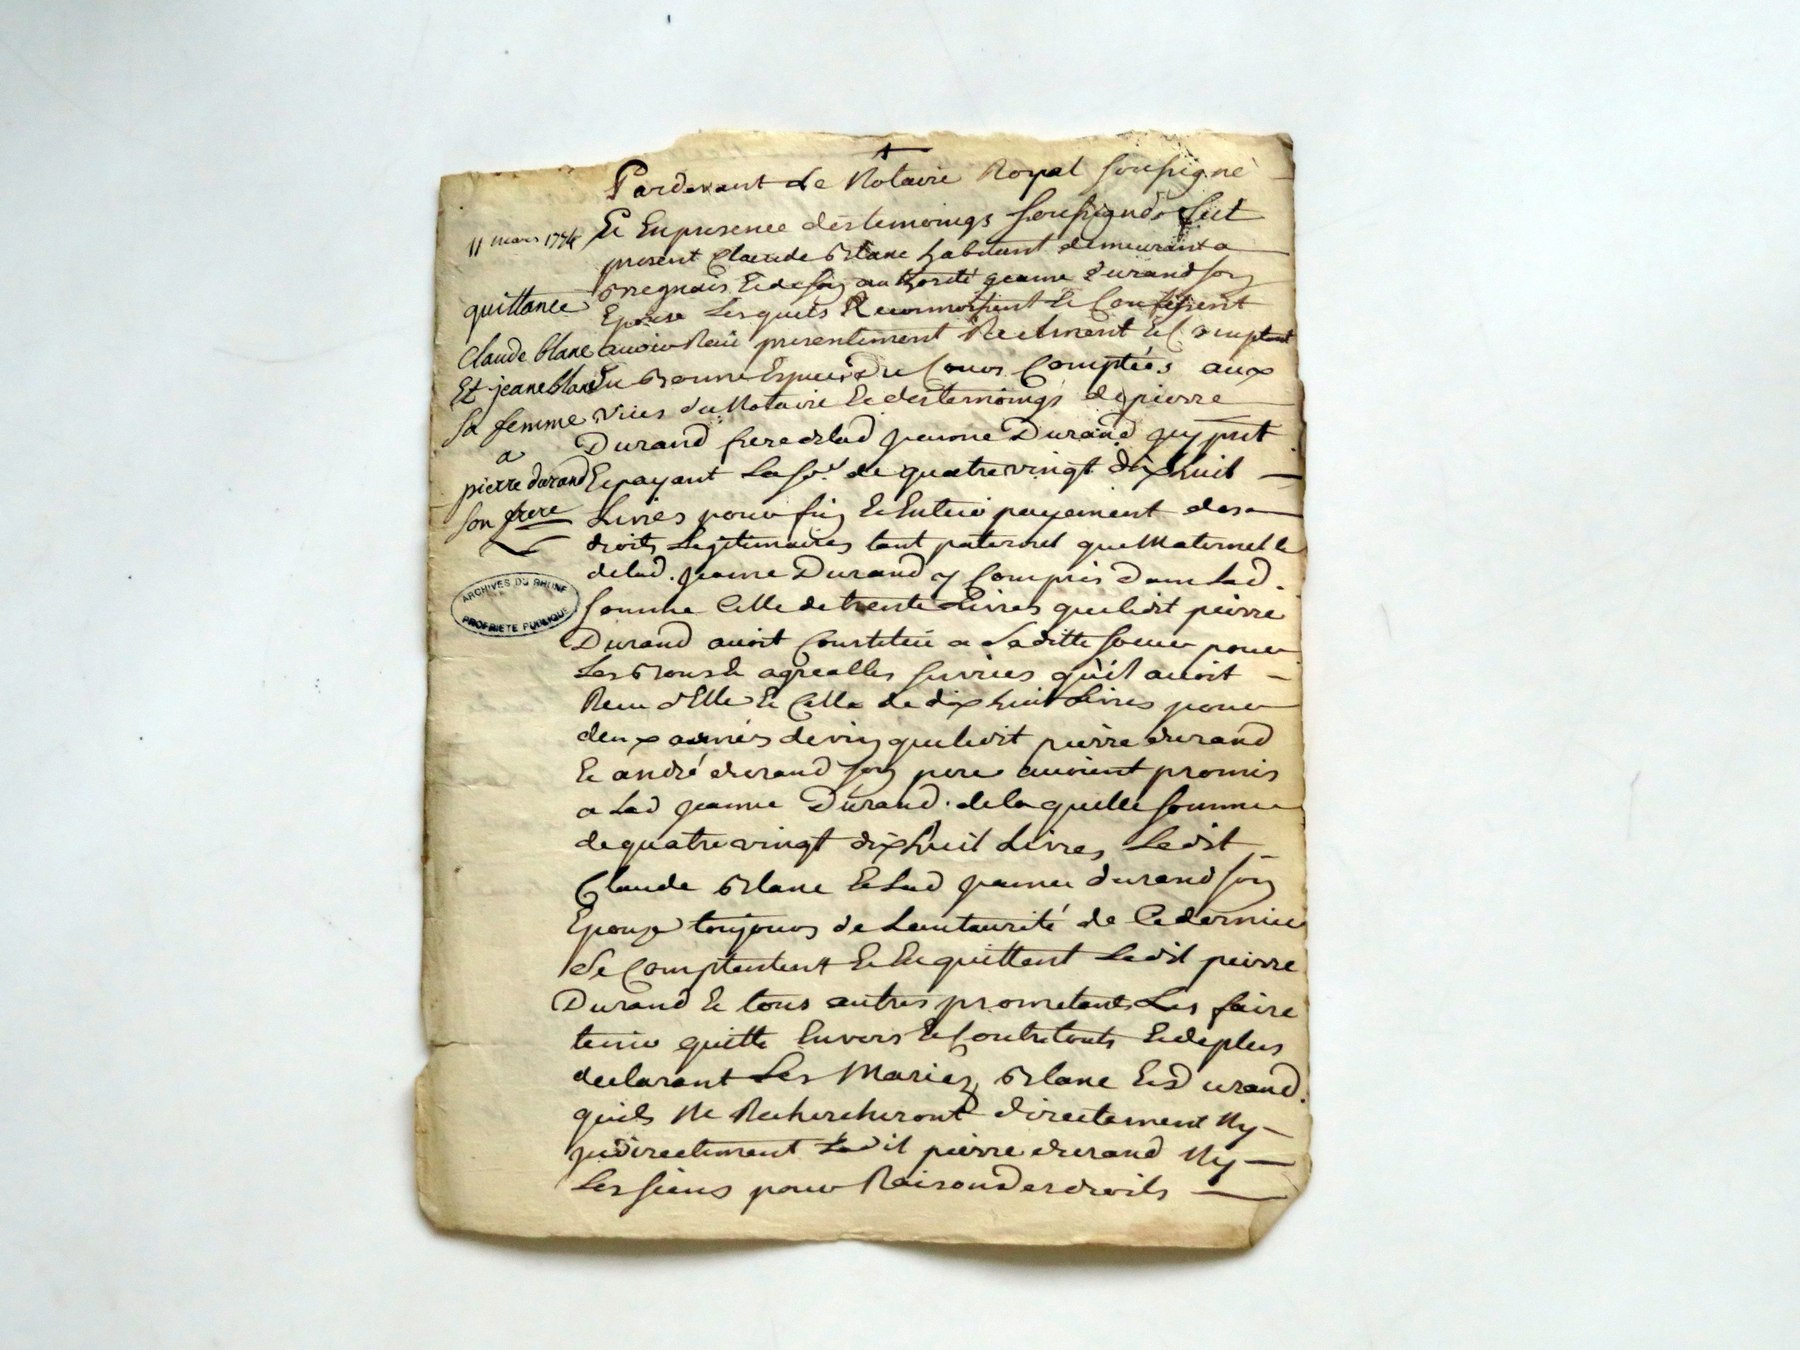 Pardevant Le Notaire Royal soussigné
Et En presence des temoings soussignés Fut
present Claude Blanc habitant demeurant a
Et de son authorité jeanne Durand son
Epouse Lesquels Reconnoissent Et Confessent
avoir Reçû presentement Reelment Et Comptant
En Bonne Espece De Cours Comptées aux
vües du Notaire Et des temoings de pierre
Durand frere de lad jeanne Durand icy pnt
Et payant La so.e de quatre vingt dix huit
Livres pour fin Et Entier payement des
droits Legitimaires tant paternel que Maternelle
de lad. jeanne Durand y Compris Dans Lad.
somme Celle de trente Livres que ledit pierre
Durand avoit Constitué a Laditte soeur pour
Les Bons Et agreables services qu'il avoit
Receu d'Elle Et Celle de dix huit Livres pour
deux asnées de vin que ledit pierre durand
Et andré durand son pere avoient promis
a Lad jeanne Durand. de laquelle somme
de quatre vingt dix huit Livres Ledit
Claude Blanc Et Lad jeanne durand son
Epouse toujours de Lauthorité de Ce dernier
se Comptentent Et En quittent Ledit pierre
Durand Et tous autres prometants Les faire
tenir quitte Envers Et Contre touts Et de plus
declarant Les Mariez Blanc Et Durand.
quils Ne Rechercheront directement Ny
jndirectement Ledit pierre durand Ny
Les siens pour Raison Des droits
11 mars 1774
quittance
Claude blanc
Et jeane blanc
sa femme
a
pierre durand
son frere
ARCHIVES DU RHONE
PROPRIETE PUBLIQUE